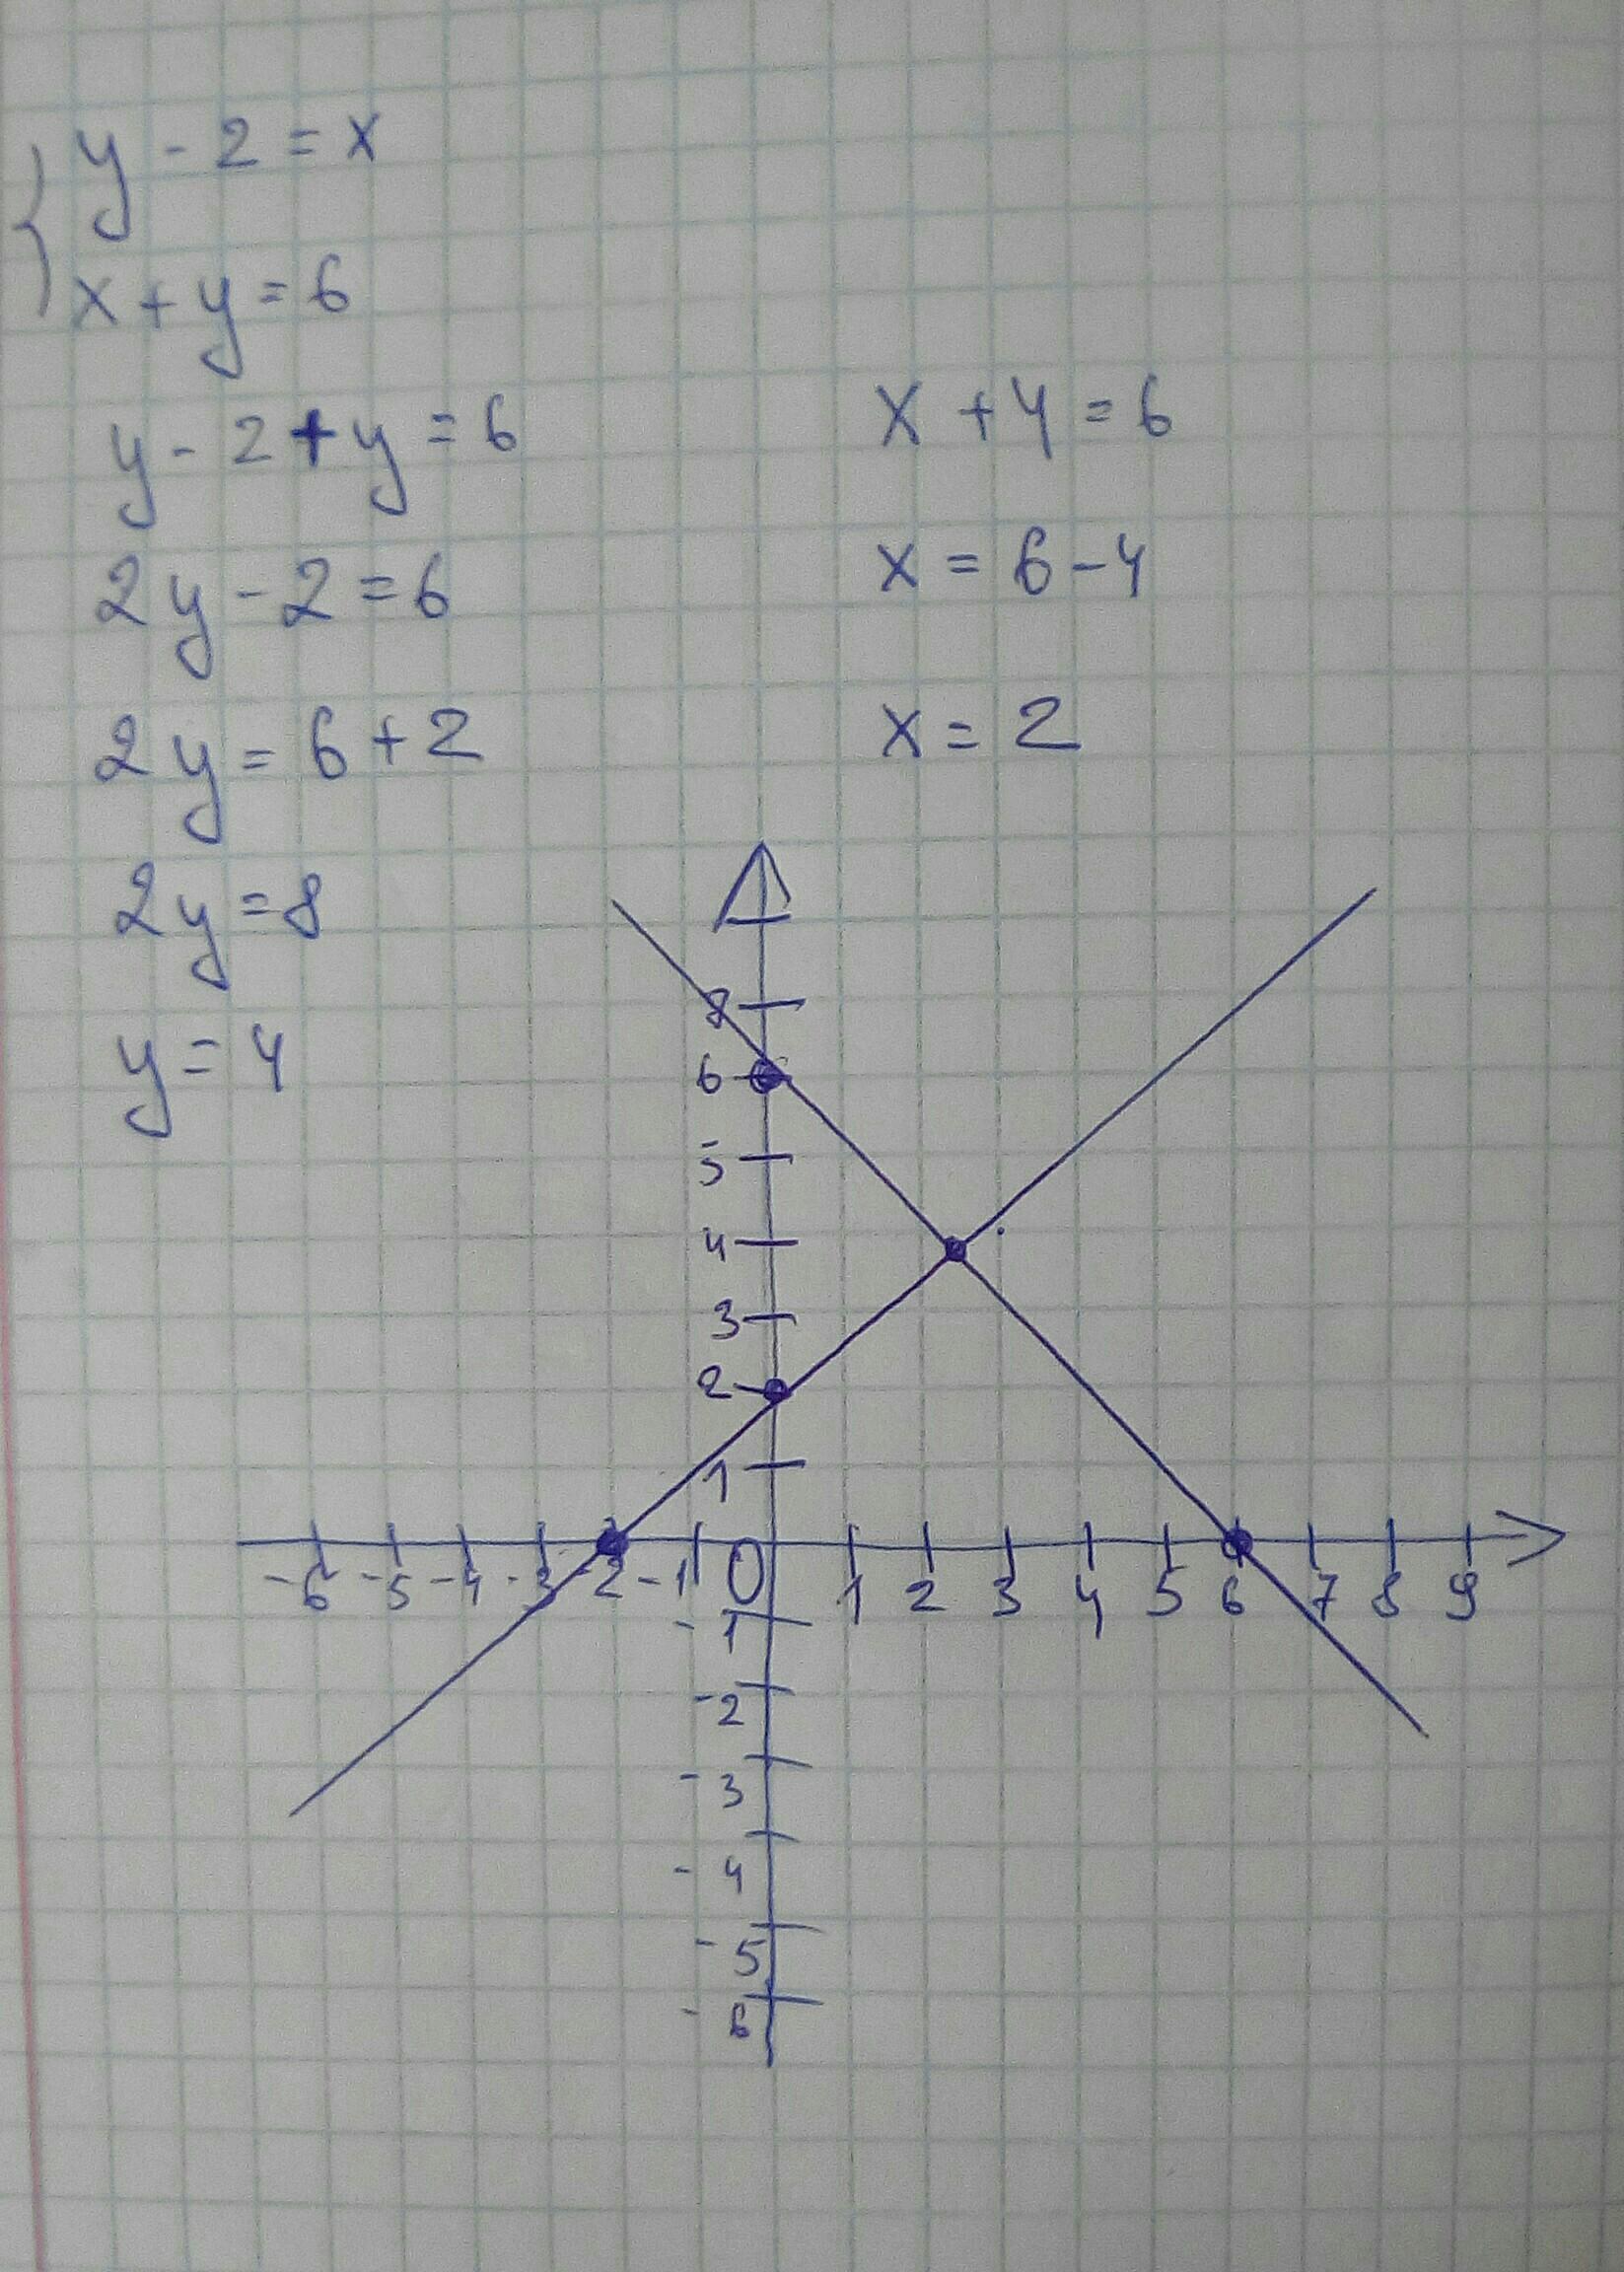 y - 2 = x
x + y = 6
y - 2 + y = 6
2y - 2 = 6
2y = 6 + 2
2y = 8
y = 4
x + 4 = 6
x = 6 - 4
x = 2
6
5
4
3
2
1
-6 -5 -4 -3 -2 -1 0 1 2 3 4 5 6 7 8 9
-1
-2
-3
-4
-5
-6